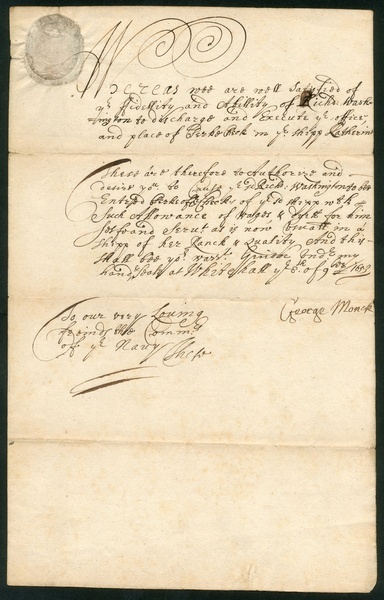 Whereas wee are well Satisfied of
ye fidellity and Abillity of Richd: Wash=
=ington to discharge and Execute ye office
and place of in ye shipp Katherine
These are therefore to Authorize and
desire you to Cause ye sd Rich: Washington to bee
Entred of ye sd shipp wth
Such Allowance of wages & for him
selfe and Servt as is now in a
shipp of her Ranck & Quality And this
shall bee yor warrt. Given undr my
hand & seale at Whitehall ye of 9ber 1659
George Monck
To our very Loving
freinds the Commrs
of ye Navy These